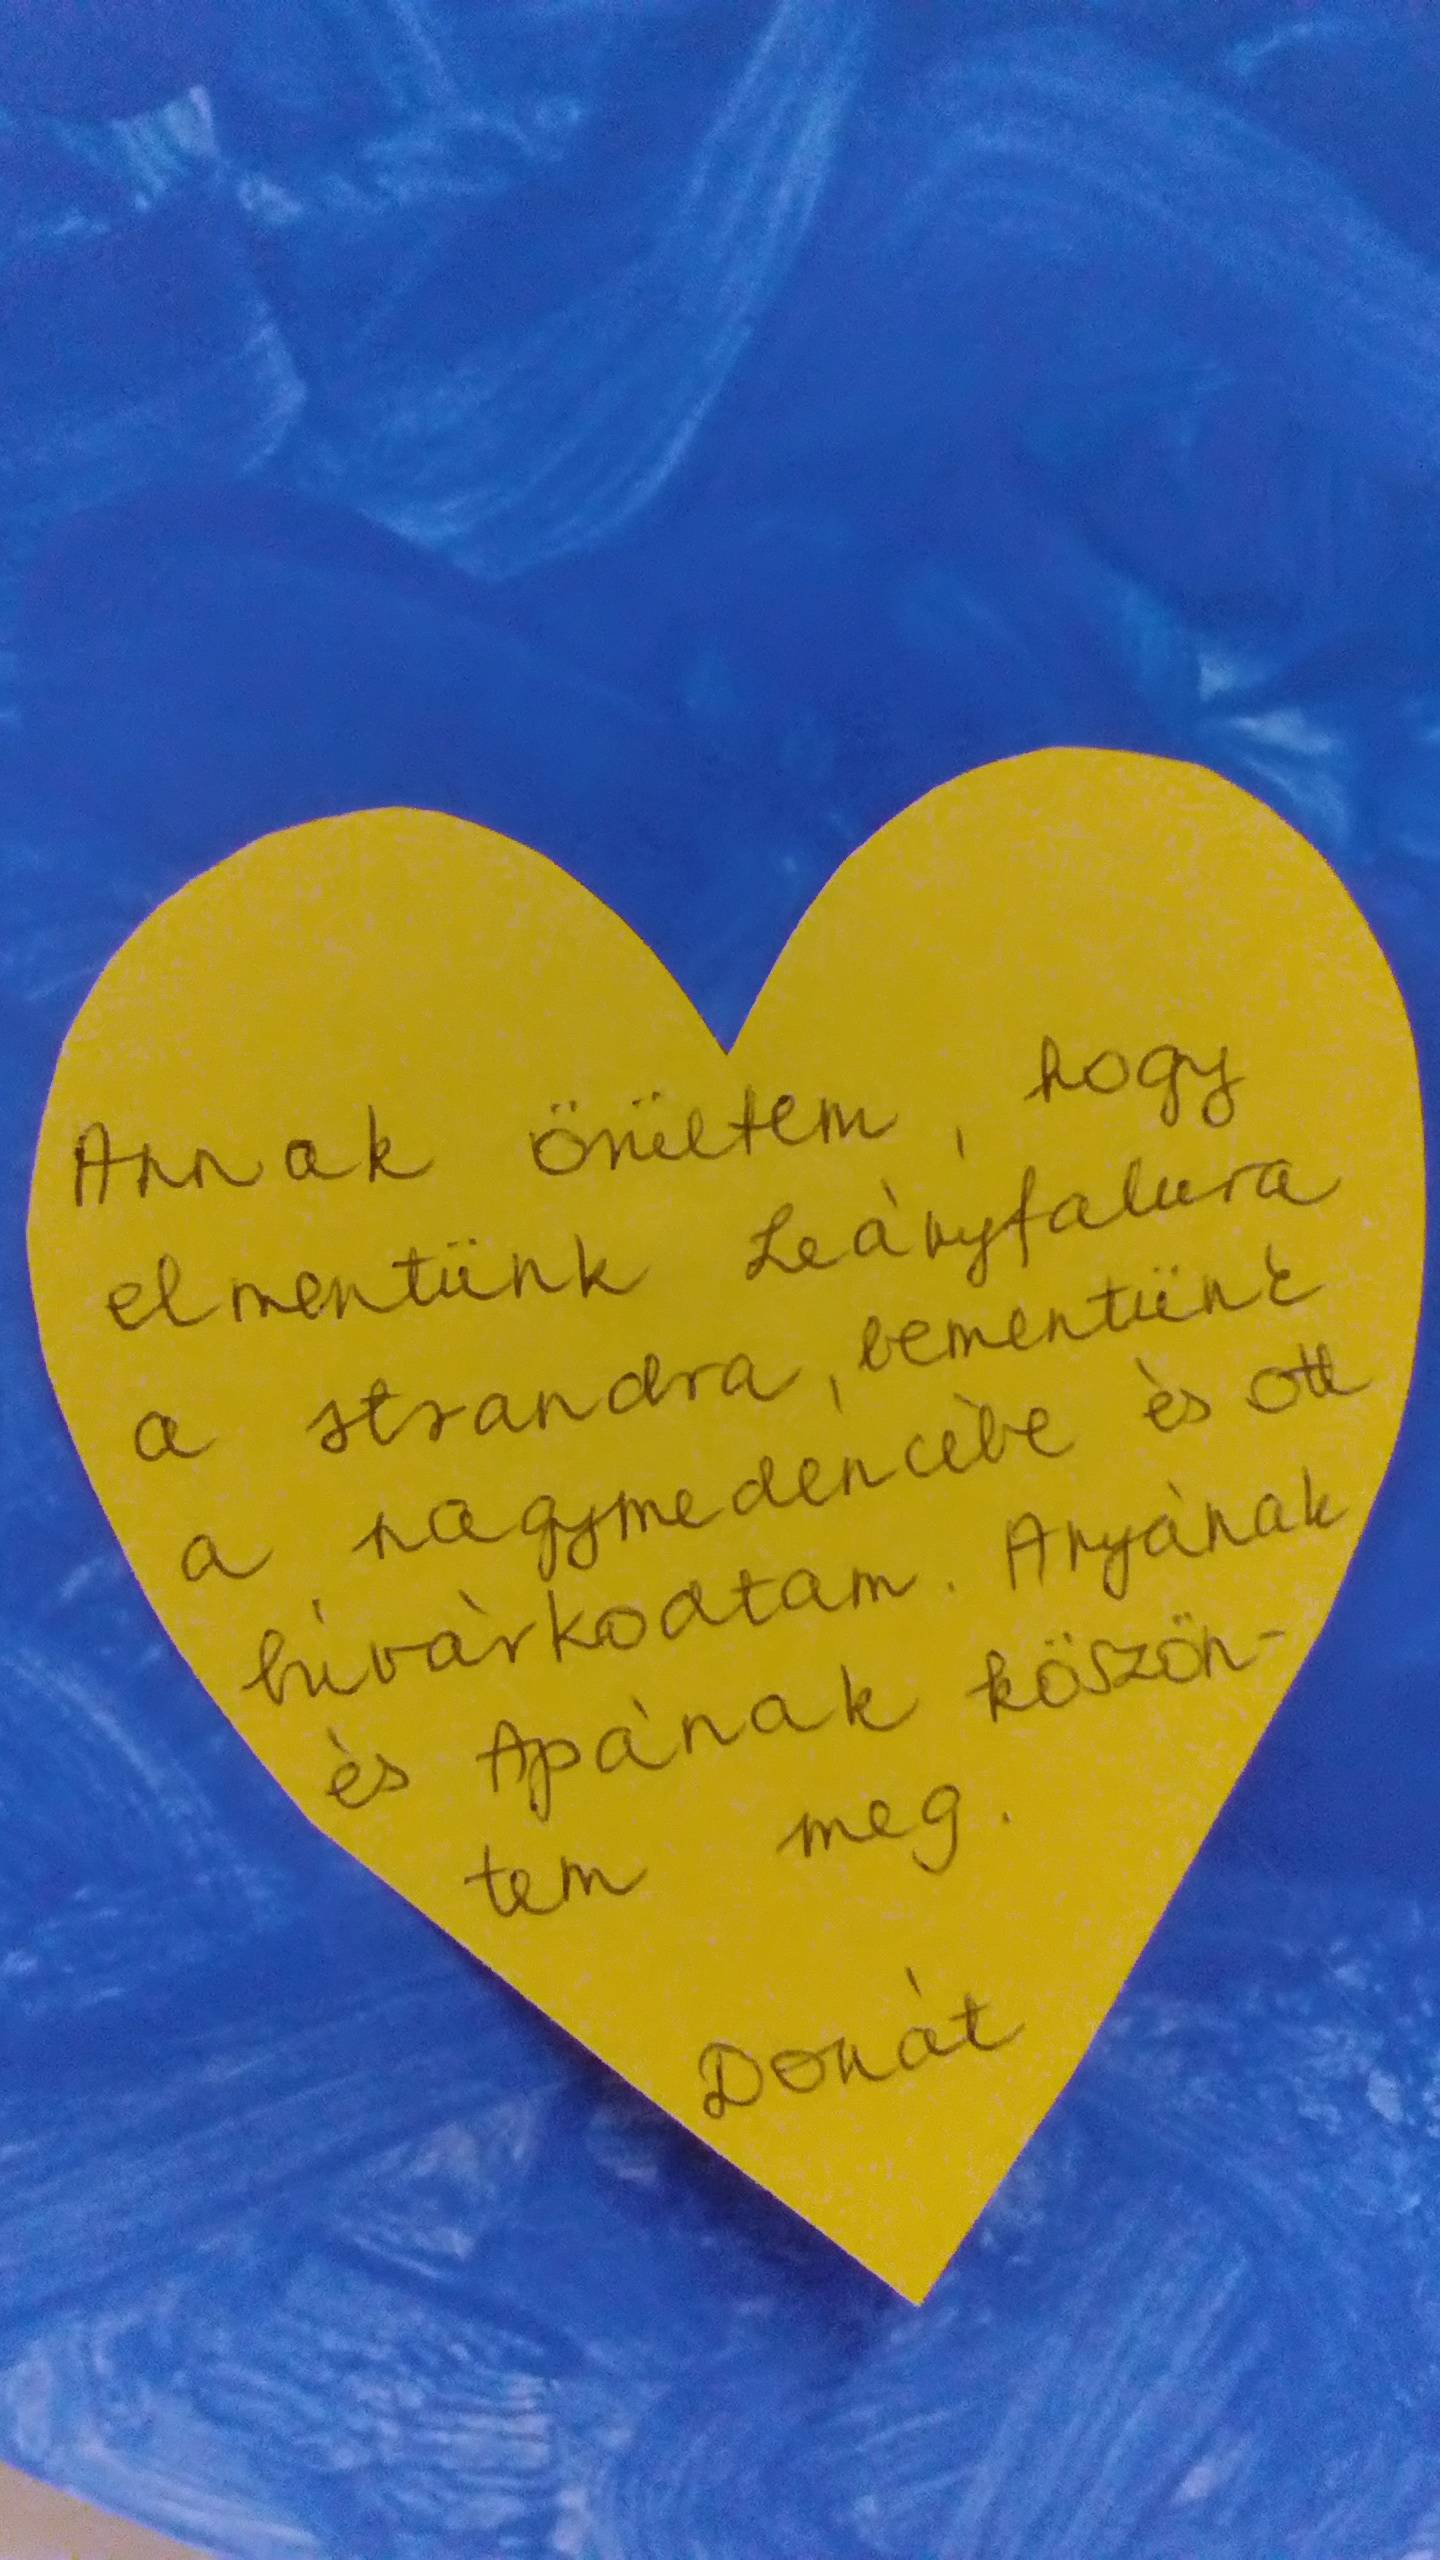 Annak örültem, hogy
elmentünk Leányfalura
a strandra, bementünk
a nagymedencébe és ott
búvárkodtam. Anyának
és Apának köszön-
tem meg.
Donát